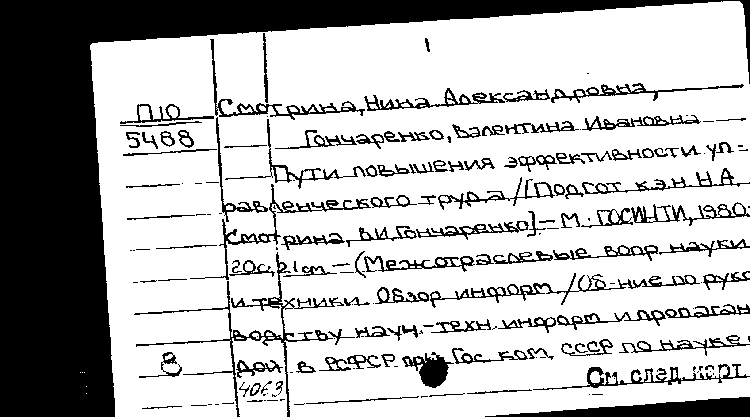 1
П10
5488
Смотрина, Нина Александровна,
Гончаренко, Валентина Ивановна
Пути повышения эффективности уп-
равленческого труда /[Подгот. к.э.н. Н.А.
Смотрина, В.И. Гончаренко] - М.: ГОСИНТИ, 1980.
20 с, 21 см - (Межотраслевые вопр. науки
и техники. Обзор информ /Об-ние по руко
водству науч.-техн. информ и пропаган
дой в РСФСР при Гос ком. СССР по науке
8
4063
См. след. карт.